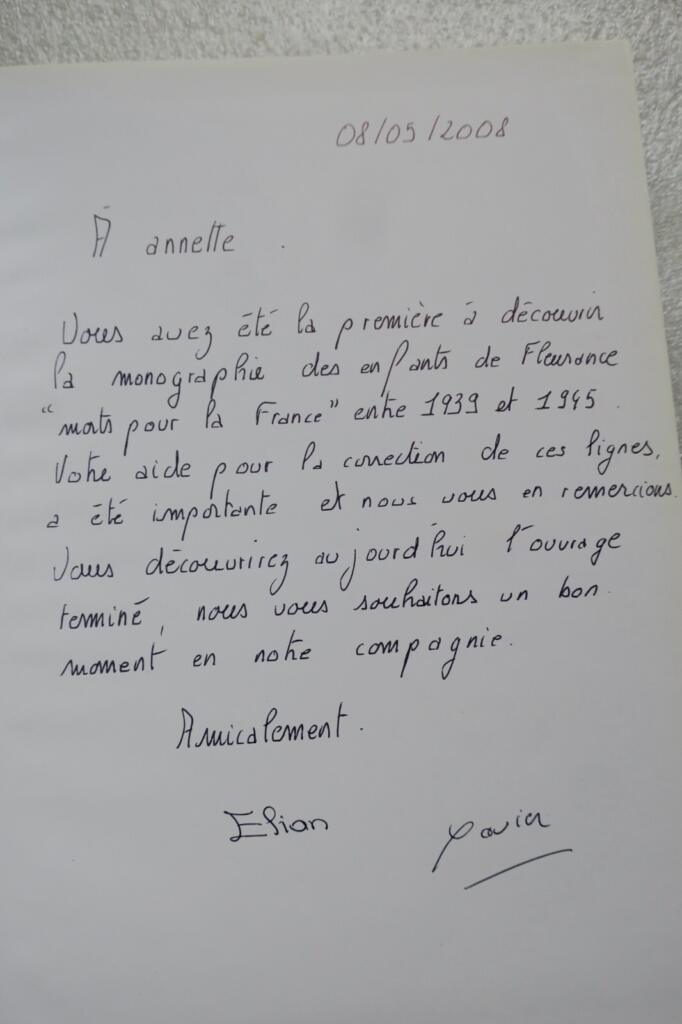 08/05/2008
À annette.
Vous avez été la première à découvrir
la monographie des enfants de Fleurance
"morts pour la France" entre 1939 et 1945.
Votre aide pour la correction de ces lignes,
a été importante et nous vous en remercions.
Vous découvrirez aujourd'hui l'ouvrage
terminé, nous vous souhaitons un bon
moment en notre compagnie.
Amicalement.
Elian Xavier